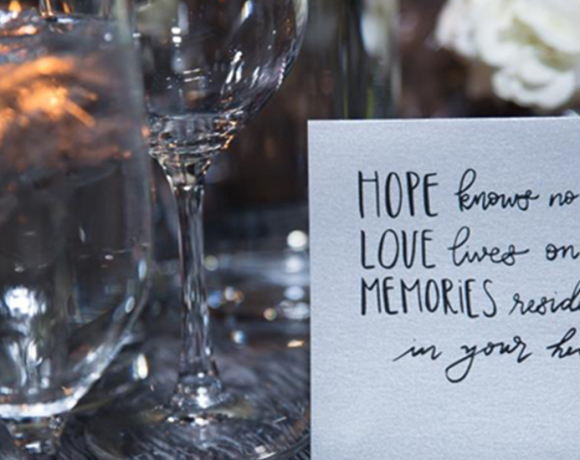 HOPE knows no
LOVE lives on
MEMORIES resid
in your he